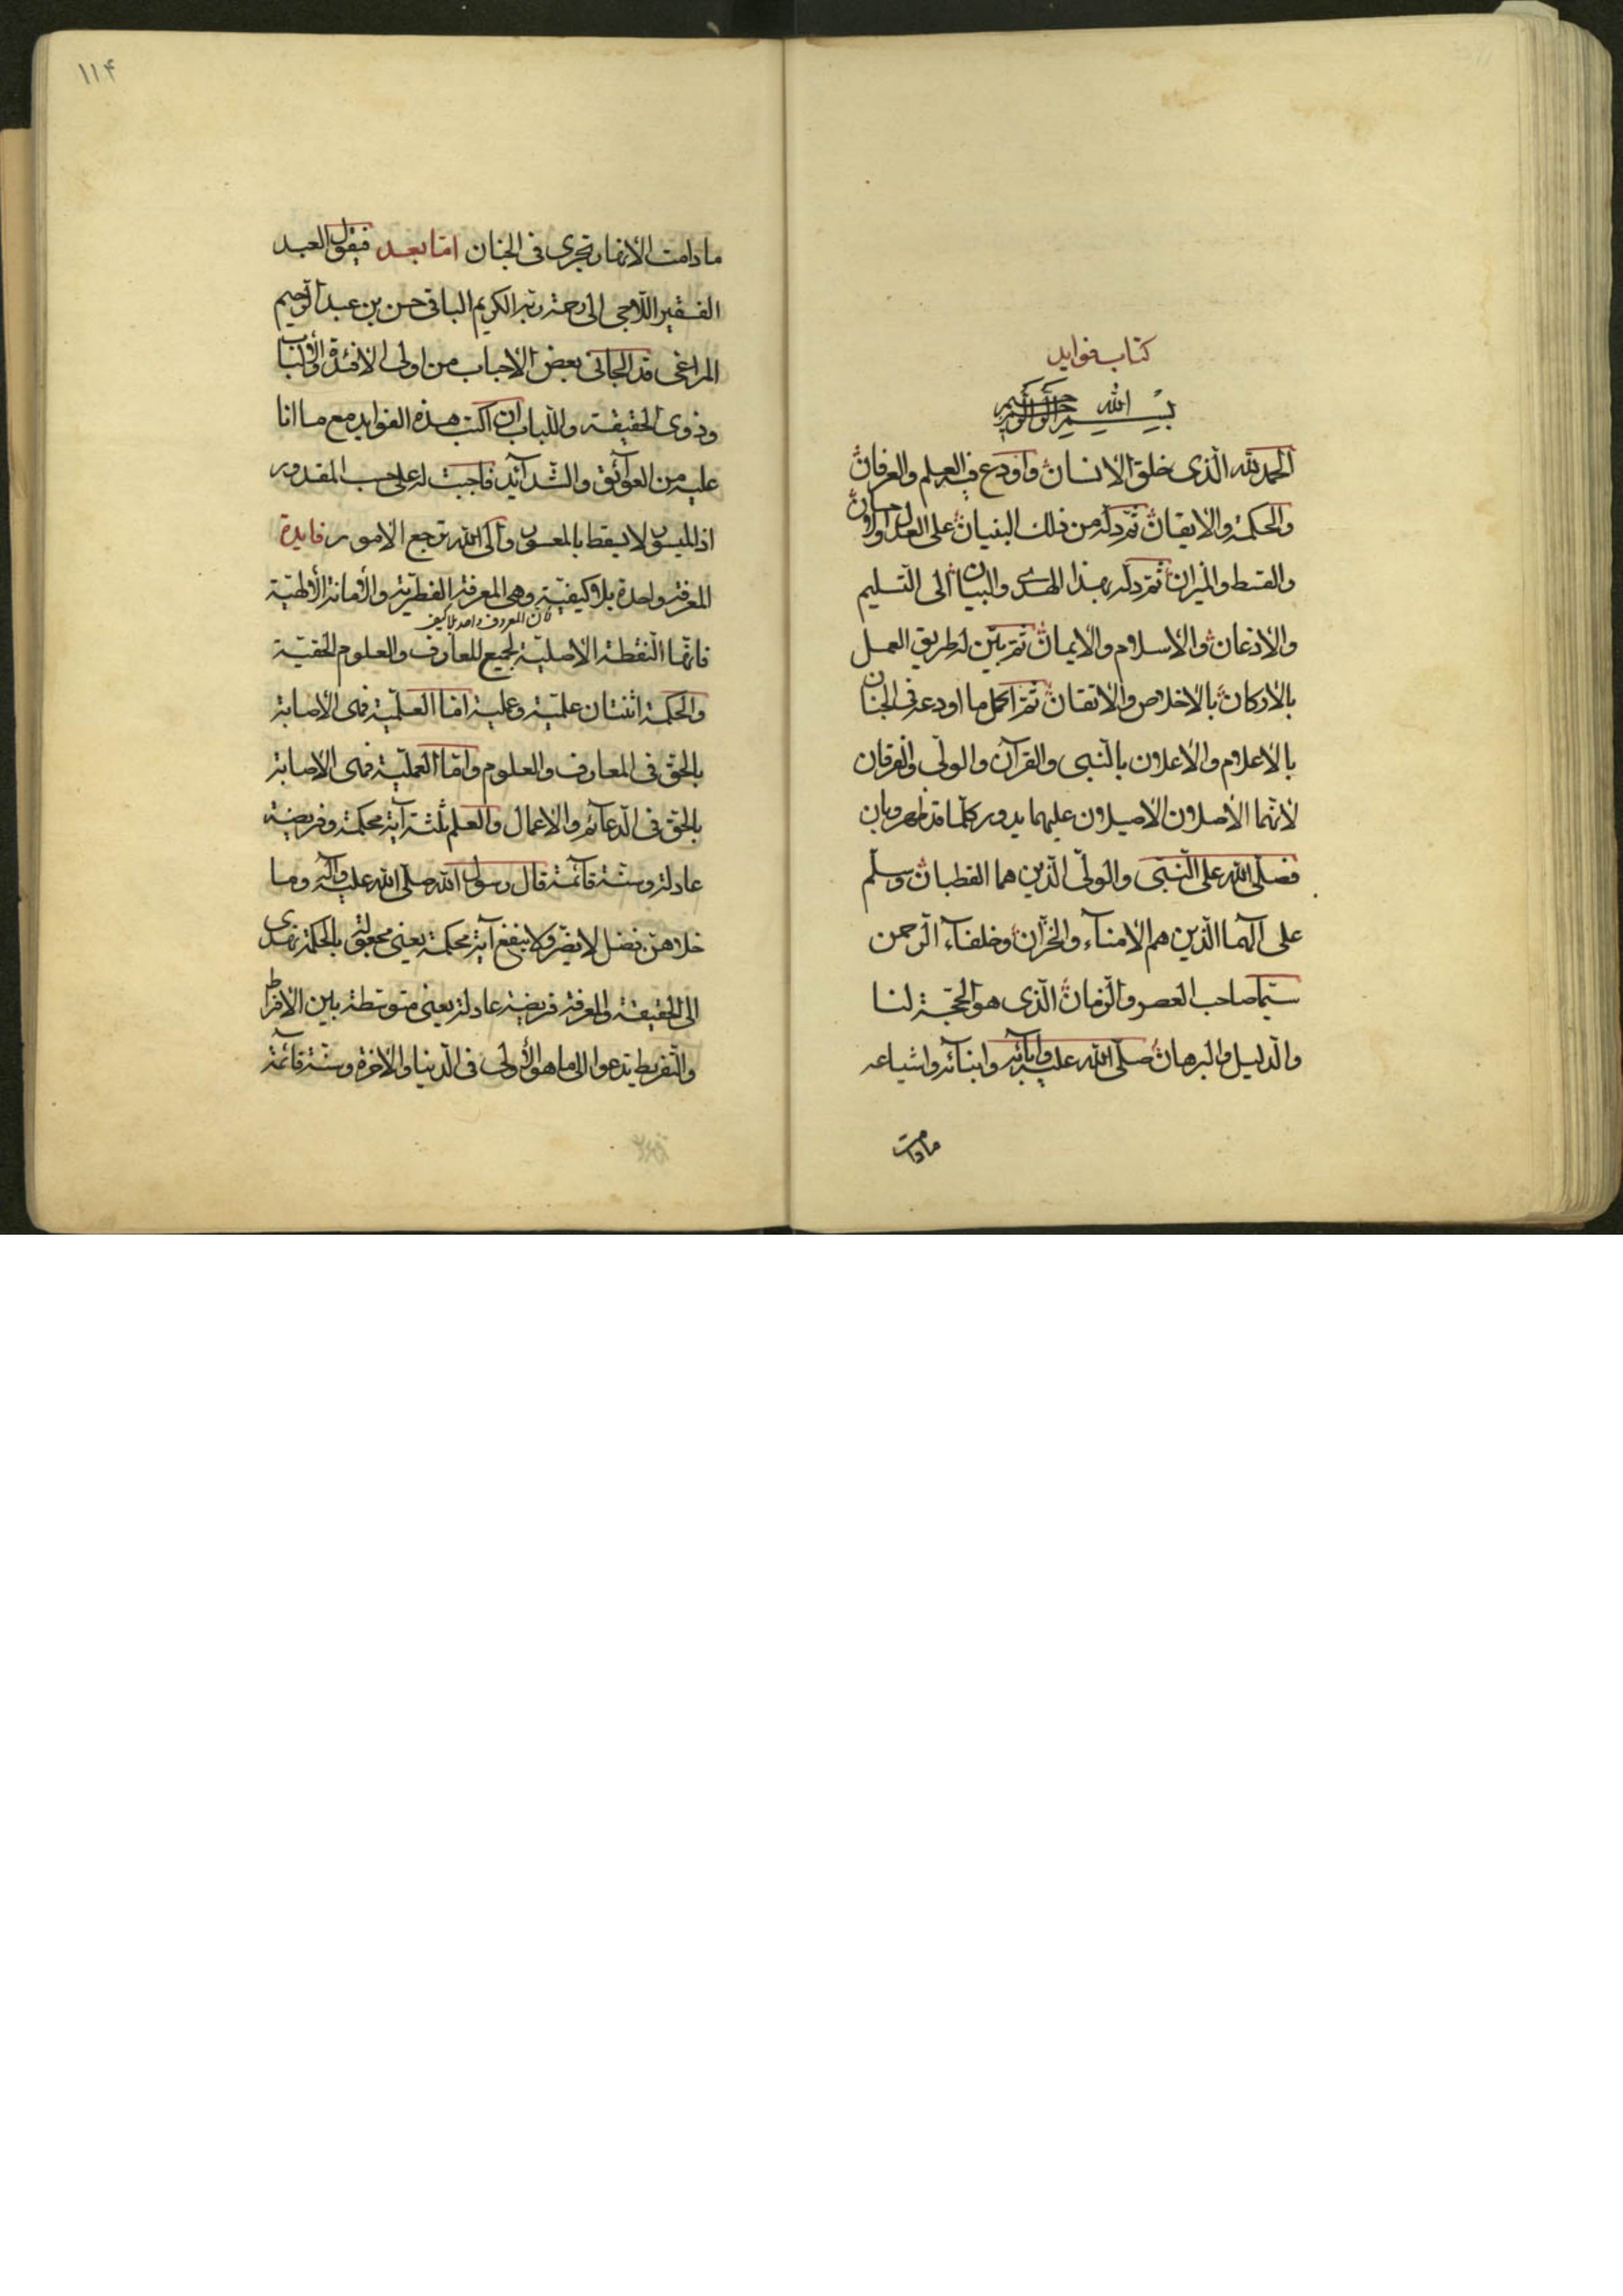 كتاب فوايد
بسم الله الرحمن الرحيم
الحمد لله الّذى خلق الانسان واودع فيه العلم والعرفان
والحكمة والايقان ثمّ دلّه من ذلك البنيان على العدل والاحسان
والقسط والميزان ثمّ دلّه بهذا الهدى والبيان الى التّسليم
والاذعان والاسلام والايمان ثمّ بيّن له طريق العمل
بالاركان بالاخلاص والاتقان ثمّ اكمل ما اودعه فى الجنان
بالاعلام والاعلان بالنّبى والقرآن والولّى والفرقان
لانّهما الاصلان الاصيلان عليهما يدور كلّما قد ظهر وبان
فصلّى الله على النّبى والولّى الّذين هما القطبان وسلّم
على آلهما الّذين هم الامنآء والخزّان وخلفآء الرّحمن
سيّما صاحب العصر والزمان الّذى هو الحجّة لنا
والدليل والبرهان صلّى الله عليه وآبائه وابنآئه واشياعه
مادامت
١١۴
مادامت الانهار تجرى فى الجنان امّا بعد فيقول العبد
الفقير اللاجى الى رحمة ربّه الكريم الباقى حسن بن عبد الرّحيم
المراغى قد الجانى بعض الاحباب من اولى الافئدة والالباب
وذوى الحقيقة واللباب ان اكتب هذه الفوايد مع ما انا
عليه من العوآئق والشّدآئد فاجبت له على حسب المقدور
اذ الميسور لا يسقط بالمعسور والى الله ترجع الامور فايدة
المعرفة واحدة بلا كيفيّة وهى المعرفة الفطريّة والامانة الالهيّة
فان المعروف واحد بلا كيف
فانّها النّقطة الاصليّة لجميع المعارف والعلوم الحقيّة
والحكمة اثنتان علميّة وعمليّة امّا العلميّة فهى الاصابة
بالحقّ فى المعارف والعلوم وامّا العمليّة فهى الاصابة
بالحقّ فى الدّعآئم والاعمال والعلم ثلثة آية محكمة وفريضة
عادلة وسنّة قآئمة قال رسول الله صلّى الله عليه وآله وما
خلاهنّ فضل لا يضرّ ولا ينفع آية محكمة يعنى مجعولة بالحكمة تهدى
الى الحقيقة والمعرفة فريضة عادلة يعنى متوسّطة بين الافراط
والتّفريط تدعوا الى ما هو الاولى فى الدّنيا والاخرة وسنّة قآئمة